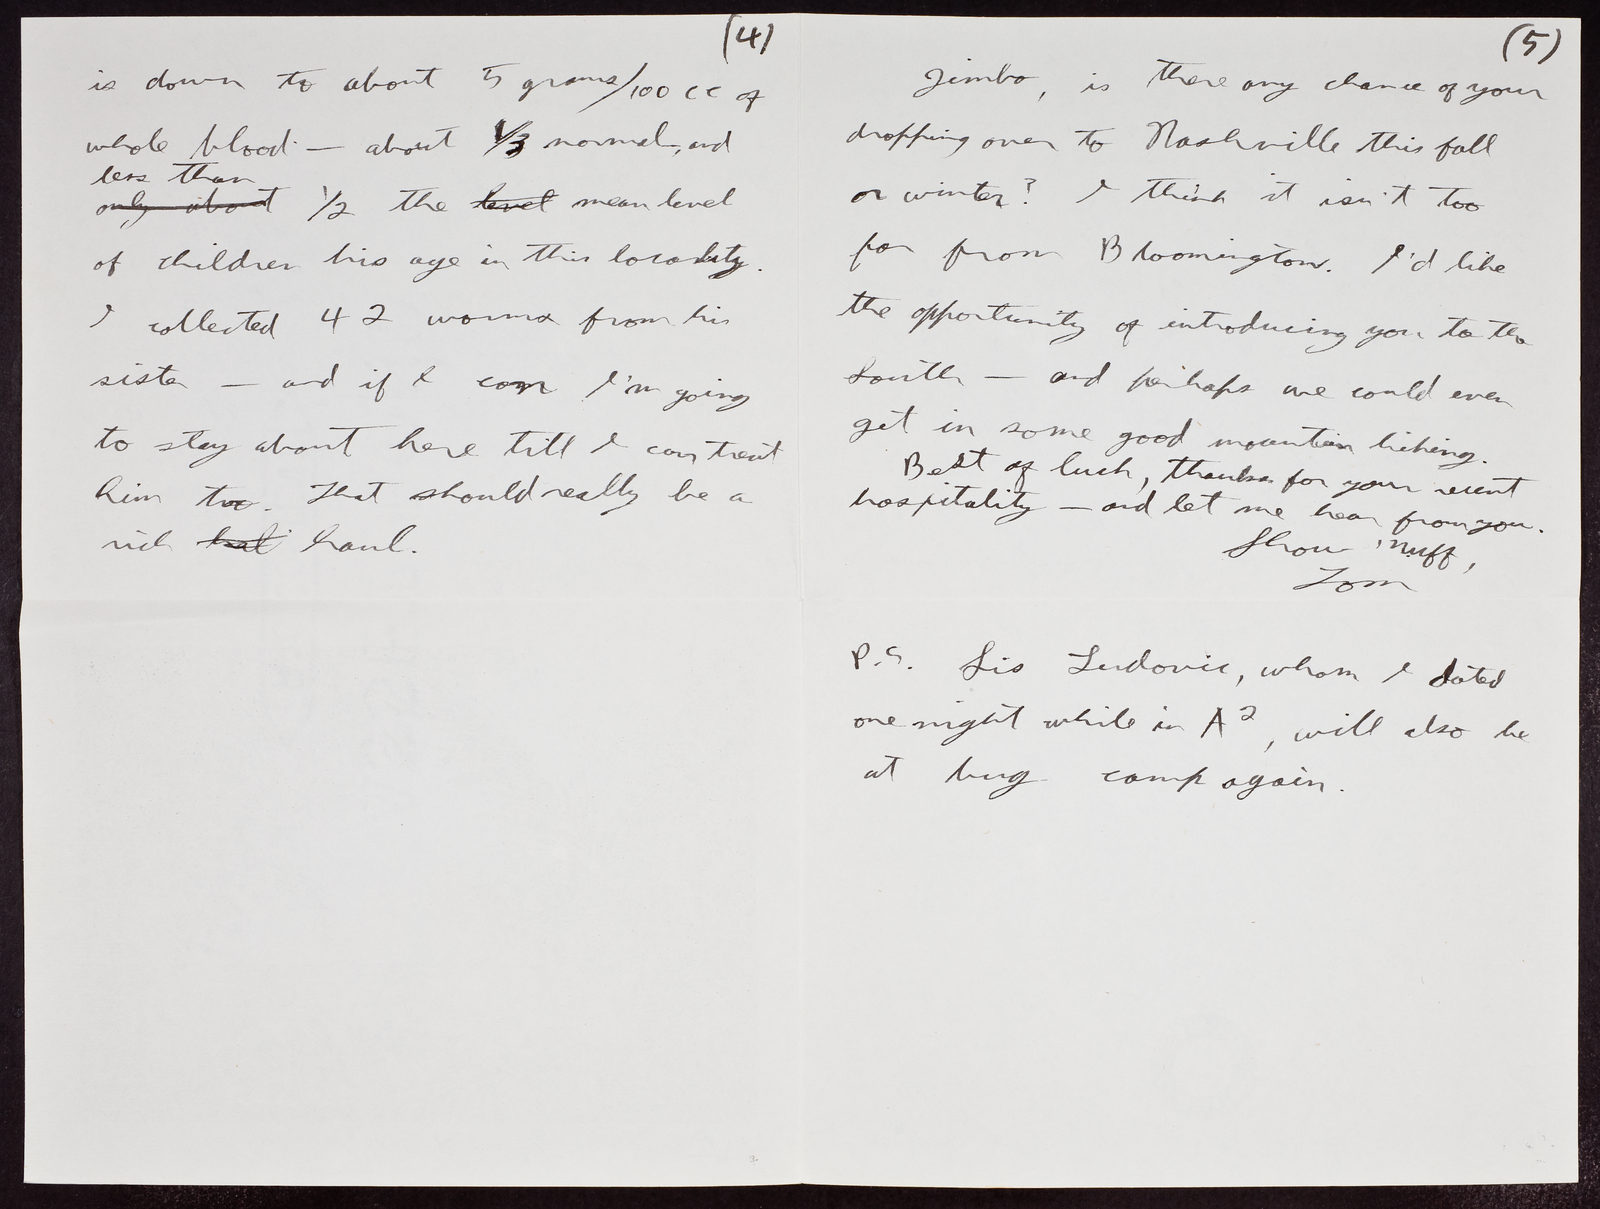 (4)
is down to about 5 grams/100 cc of
whole blood — about 1/3 normal, and
less than
only about 1/2 the level mean level
of children his age in this locality.
I collected 42 worms from his
sister — and if I can I'm going
to stay about here till I can treat
him too. That should really be a
rich haul.
(5)
Jimbo, is there any chance of your
dropping over to Nashville this fall
or winter? I think it isn't too
far from Bloomington. I'd like
the opportunity of introducing you to the
South — and perhaps we could even
get in some good mountain hiking.
Best of luck, thanks for your recent
hospitality — and let me hear from you.
Show 'nuff,
Tom
P.S. Lis Ludovic, whom I dated
one night while in A², will also be
at bug camp again.